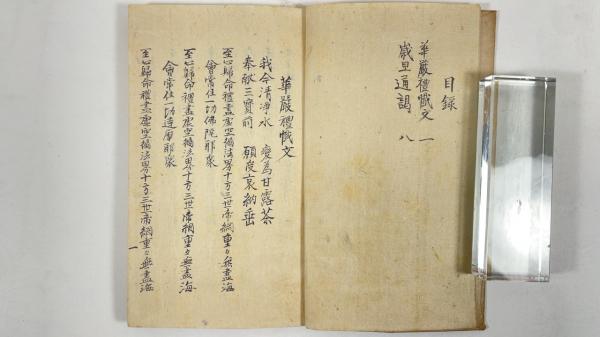 目録
華嚴禮懺文 一
歲旦通謁 八
華嚴禮懺文
我今清淨水 變為甘露茶
奉献三寶前 願 哀納
至心歸命禮盡虛空徧法界十方三世帝網重々無盡海
會常住一切佛陀耶衆
至心歸命禮盡虛空徧法界十方三世帝網重々無盡海
會常住一切達摩耶衆
至心歸命禮盡虛空徧法界十方三世帝網重々無盡海
一